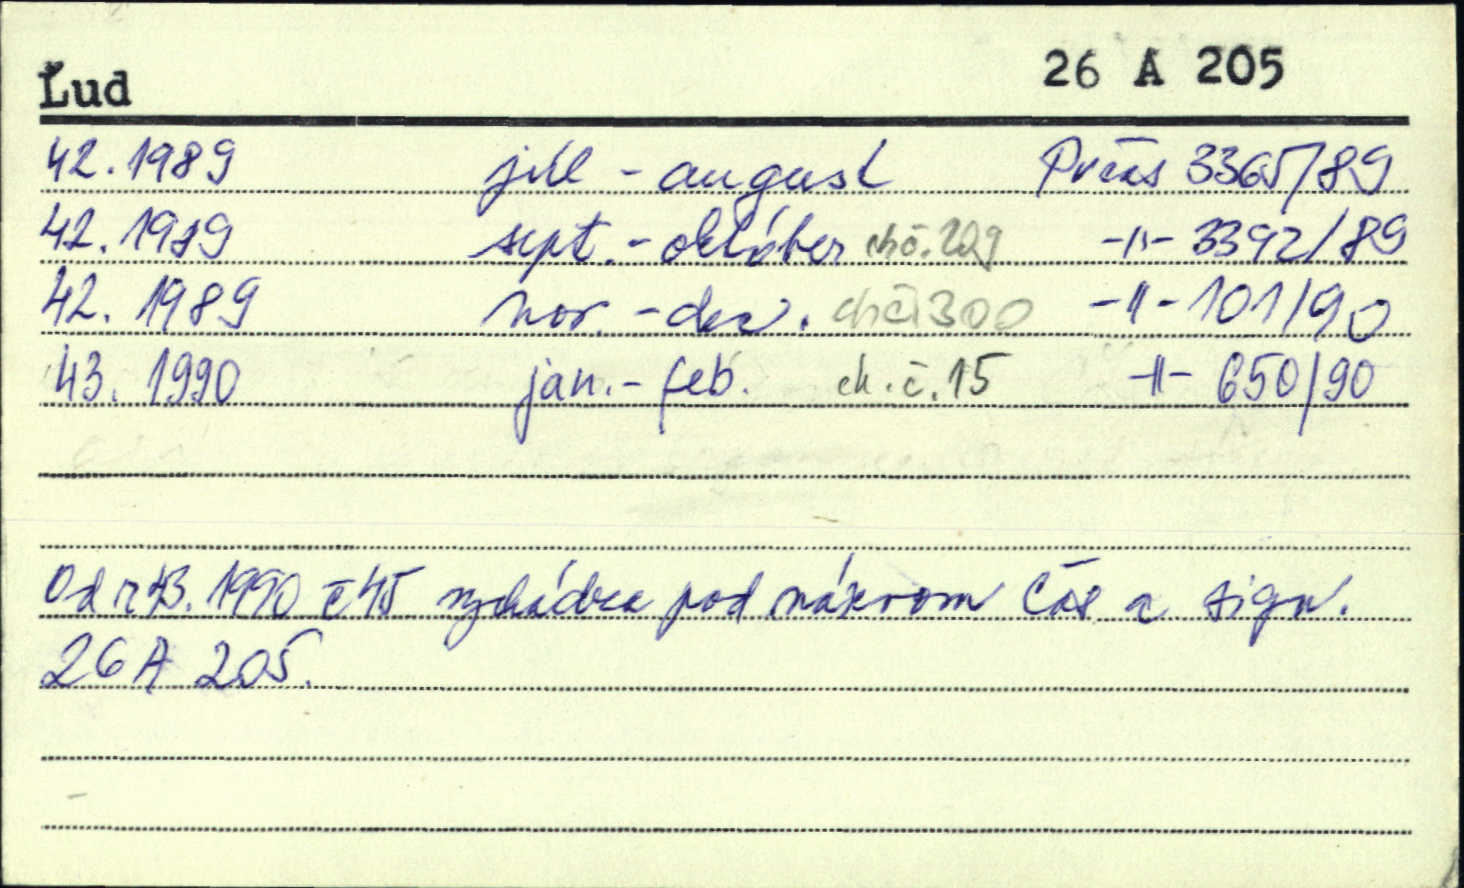 Ľud 26 A 205
42. 1989 júl - august Prčas 3365/89
42. 1989 sept. - október ch.č. 229 -"- 3392/89
42. 1989 nov. - dec. ch.č. 300 -"- 101/90
43. 1990 jan. - feb. ch. č. 15 -"- 650/90
Od r. 43. 1990 č 45 vychádza pod názvom Čas a sign.
26 A 205.